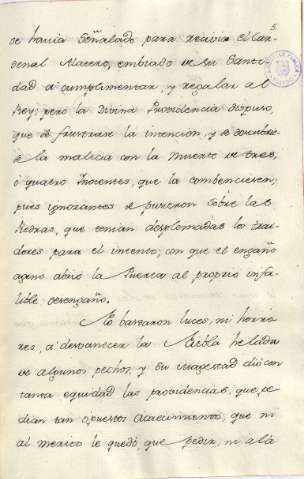 5
se havia señalado para recivir el Car-
denal Macero, embiado de su Santi-
dad a cumplimentar, y regalar al
Rey; pero la Divina Providencia dispuso,
que se frustrase la intención, y se descubrie-
se la malicia con la muerte de tres,
ó quatro Inocentes, que la combencieron;
pues ignorantes se pusieron sobre las
Piedras, que tenian desplomadas los trai-
dores para el intento; con que el engaño
ageno abrió la Puerta al proprio infa-
lible desengaño.
No bastaron luces, ni horro-
res, a desvanecer la niebla helada
de algunos pechos, y su Magestad dió con
tanta equidad las providencias, que pe-
dian tan opuestos acaecimientos, que ni
al merito le quedó, que pedir, ni a la